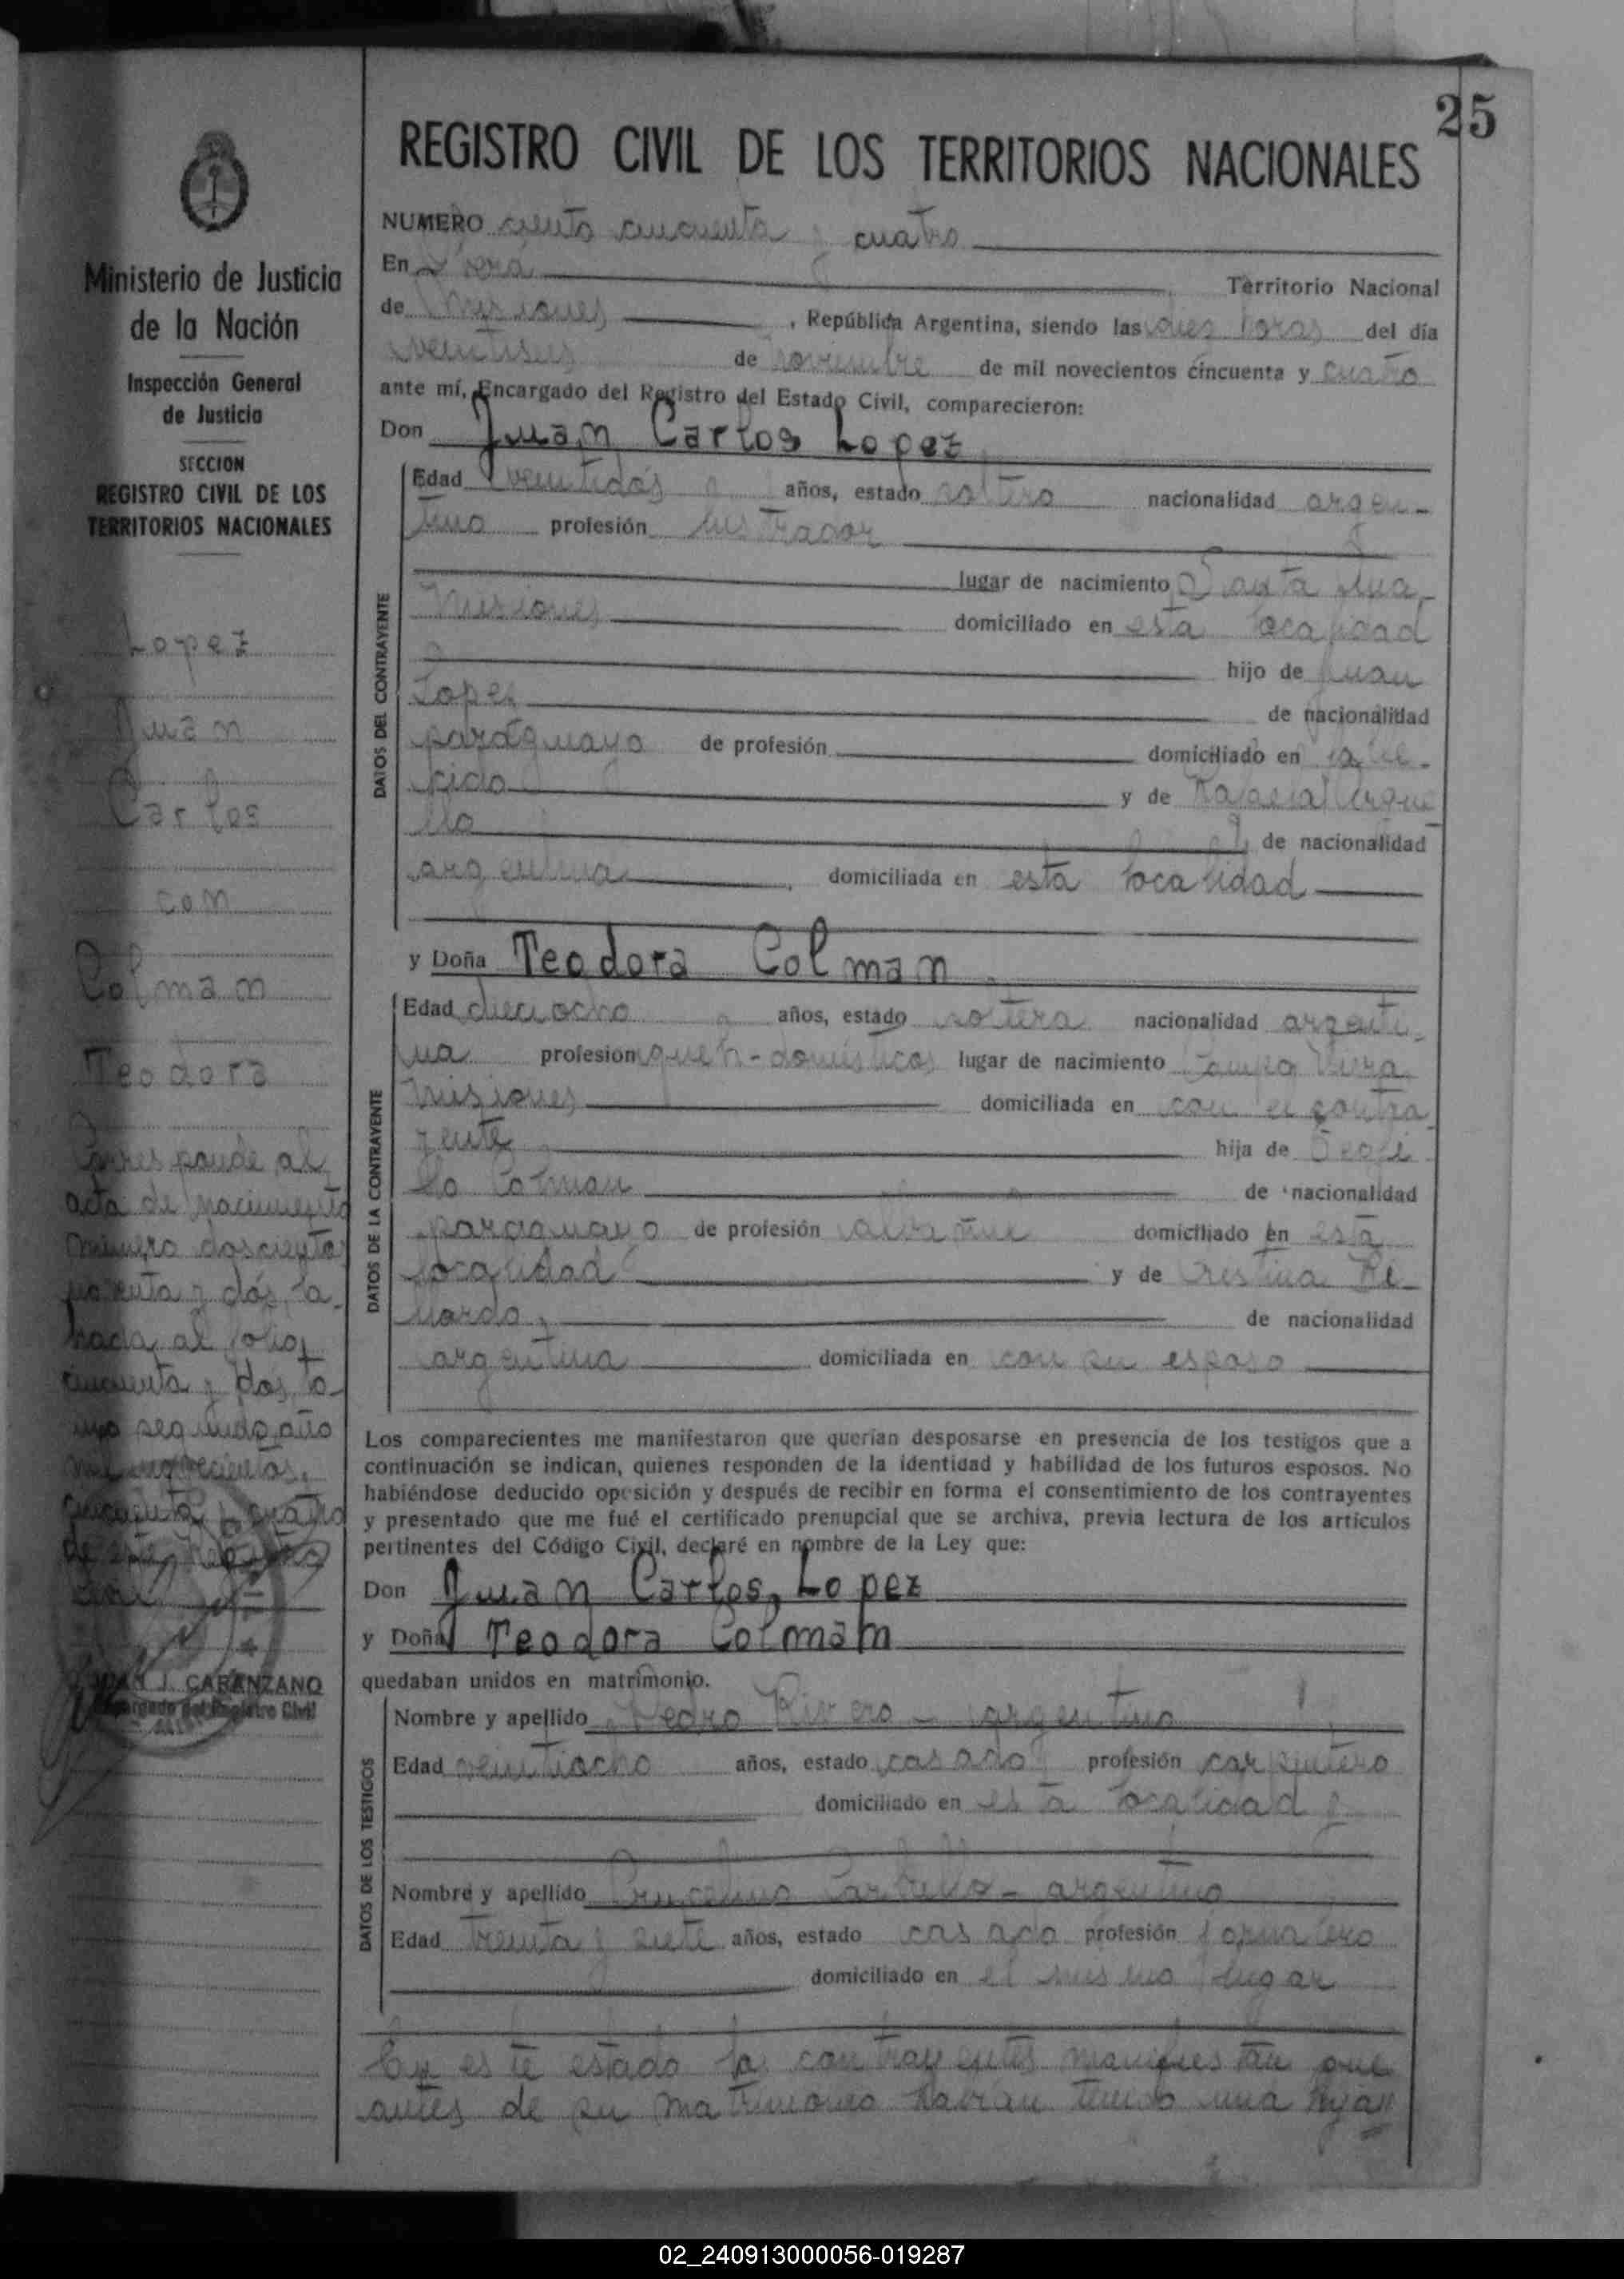 25
REGISTRO CIVIL DE LOS TERRITORIOS NACIONALES
Ministerio de Justicia
de la Nación
Inspección General
de Justicia
SECCION
REGISTRO CIVIL DE LOS
TERRITORIOS NACIONALES
Lopez
Juan
Carlos
con
Colman
Teodora
Corresponde al
acta de nacimiento
número doscientos
noventa y dós, la-
brada al folio
cincuenta y dós, to-
mo segundo, año
mil novecientos
cincuenta y cuatro
de este
JUAN J. CABANZANO
Encargado del Registro Civil
NUMERO ciento cincuenta y cuatro
En Oberá Territorio Nacional
de Misiones, República Argentina, siendo las diez horas del día
veintiseis de noviembre de mil novecientos cincuenta y cuatro
ante mí, Encargado del Registro del Estado Civil, comparecieron:
Don Juan Carlos Lopez
DATOS DEL CONTRAYENTE
Edad veintidós años, estado soltero nacionalidad argen-
tino profesión lustrador
lugar de nacimiento Santa Ana
Misiones domiciliado en esta localidad
hijo de Juan
Lopez de nacionalidad
paraguayo de profesión domiciliado en falle-
cido y de
llo de nacionalidad
argentina, domiciliada en esta localidad
y Doña Teodora Colman
DATOS DE LA CONTRAYENTE
Edad dieciocho años, estado soltera nacionalidad argenti-
na profesion queh-domésticos lugar de nacimiento Campo Viera
Misiones domiciliada en con el contra-
yente hija de Teofi-
lo Colman de nacionalidad
paraguayo de profesión albañil domiciliado en esta
localidad y de Cristina
de nacionalidad
argentina domiciliada en con su esposo
Los comparecientes me manifestaron que querían desposarse en presencia de los testigos que a
continuación se indican, quienes responden de la identidad y habilidad de los futuros esposos. No
habiéndose deducido oposición y después de recibir en forma el consentimiento de los contrayentes
y presentado que me fué el certificado prenupcial que se archiva, previa lectura de los artículos
pertinentes del Código Civil, declaré en nombre de la Ley que:
Don Juan Carlos Lopez
y Doña Teodora Colman
quedaban unidos en matrimonio.
DATOS DE LOS TESTIGOS
Nombre y apellido Pedro Rivero - argentino
Edad veintiocho años, estado casado profesión carpintero
domiciliado en esta localidad
Nombre y apellido argentino
Edad treinta y siete años, estado casado profesión jornalero
domiciliado en el mismo lugar
En este estado los contrayentes manifiestan que
antes de su matrimonio habían tenido una hija
02_240913000056-019287